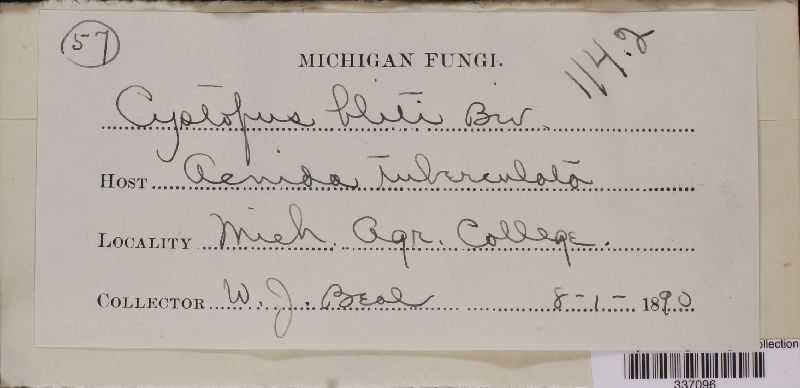 57
MICHIGAN FUNGI.
114.2
Cystopus bliti Biv.
HOST Acnida tuberculata
LOCALITY Mich. Agr. College.
COLLECTOR W. J. Beal 8-1-1890
ollection
337096